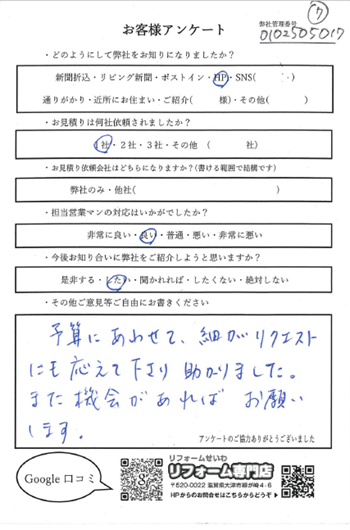 ⑦
お客様アンケート
弊社管理番号
0102505017
・どのようにして弊社をお知りになりましたか？
新聞折込・リビング新聞・ポストイン・HP・SNS(　　　)
通りがかり・近所にお住まい・ご紹介(　　　様)・その他(　　　)
・お見積りは何社依頼されましたか？
1社・2社・3社・その他　(　　　社)
・お見積り依頼会社はどちらになりますか？(書ける範囲で結構です)
弊社のみ・他社(　　　)
・担当営業マンの対応はいかがでしたか？
非常に良い・良い・普通・悪い・非常に悪い
・今後お知り合いに弊社をご紹介しようと思いますか？
是非する・したい・聞かれれば・したくない・絶対しない
・その他ご意見等ご自由にお書きください
予算にあわせて、細かリクエスト
にも応えて下さり助かりました。
また機会があれば お願い
します。
アンケートのご協力ありがとうございました
Google 口コミ
リフォームせいわ
リフォーム専門店
〒520-0022 滋賀県大津市柳が崎4-6
HPからのお問合せはこちらからどうぞ